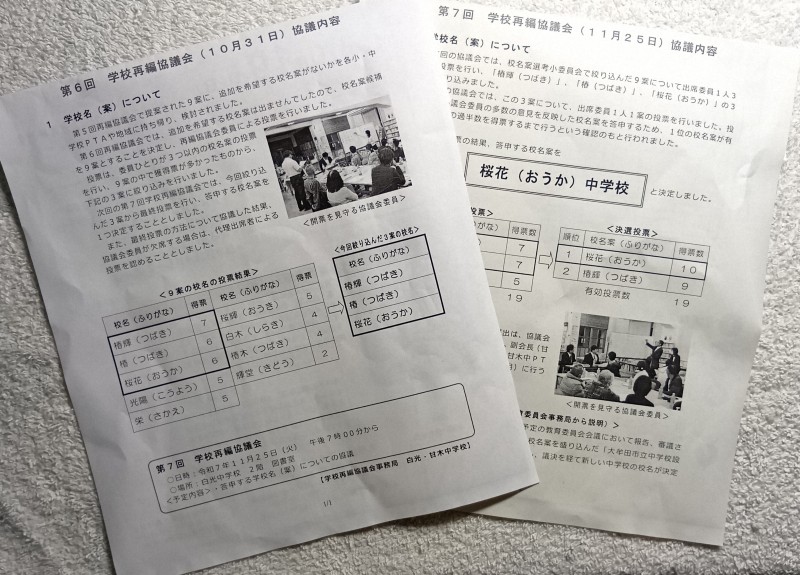 第6回 学校再編協議会（10月31日）協議内容
1 学校名（案）について
第5回再編協議会で提案された9案に、追加を希望する校名案がないかを各小・中
学校PTAや地域に持ち帰り、検討されました。
第6回再編協議会では、追加を希望する校名案は出ませんでしたので、校名案候補
を9案とすることを決定し、再編協議会委員による投票を行いました。
投票は、委員ひとりが3つ以内の校名案の投票
を行い、9案の中で獲得票が多かったものから、
下記の3案に絞り込みを行いました。
次回の第7回学校再編協議会では、今回絞り込
んだ3案から最終投票を行い、答申する校名案を
1つ決定することとしました。
また、最終投票の方法について協議した結果、
協議会委員が欠席する場合は、代理出席者による
投票を認めることとしました。
＜開票を見守る協議会委員＞
＜9案の校名の投票結果＞
校名（ふりがな） 得票 校名（ふりがな） 得票
椿輝（つばき） 7 桜輝（おうき） 5
椿（つばき） 6 白木（しらき） 4
桜花（おうか） 6 椿木（つばき） 4
光陽（こうよう） 5 輝堂（きどう） 2
栄（さかえ） 5
＜今回絞り込んだ3案の校名＞
校名（ふりがな）
椿輝（つばき）
椿（つばき）
桜花（おうか）
第7回 学校再編協議会
○日時：令和7年11月25日（火） 午後7時00分から
○場所：白光中学校 2階 図書室
＜予定内容＞・答申する学校名（案）についての協議
【学校再編協議会事務局 白光・甘木中学校】
1/1
第7回 学校再編協議会（11月25日）協議内容
学校名（案）について
回の協議会では、校名案選考小委員会で絞り込んだ9案について出席委員1人3
投票を行い、「椿輝（つばき）」、「椿（つばき）」、「桜花（おうか）」の3
り込みました。
の協議会では、この3案について、出席委員1人1案の投票を行いました。投
議会委員の多数の意見を反映した校名案を答申するため、1位の校名案が有
の過半数を得票するまで行うという確認のもと行われました。
票の結果、答申する校名案を
桜花（おうか）中学校
と決定しました。
投票＞
得票数
7
7
5
19
＜決選投票＞
順位 校名案（ふりがな） 得票数
1 桜花（おうか） 10
2 椿輝（つばき） 9
有効投票数 19
出は、協議会
、副会長（甘
甘木中PT
）に行う
＜開票を見守る協議会委員＞
委員会事務局から説明）＞
予定の教育委員会会議において報告、審議さ
校名案を盛り込んだ「大牟田市立中学校設
、議決を経て新しい中学校の校名が決定